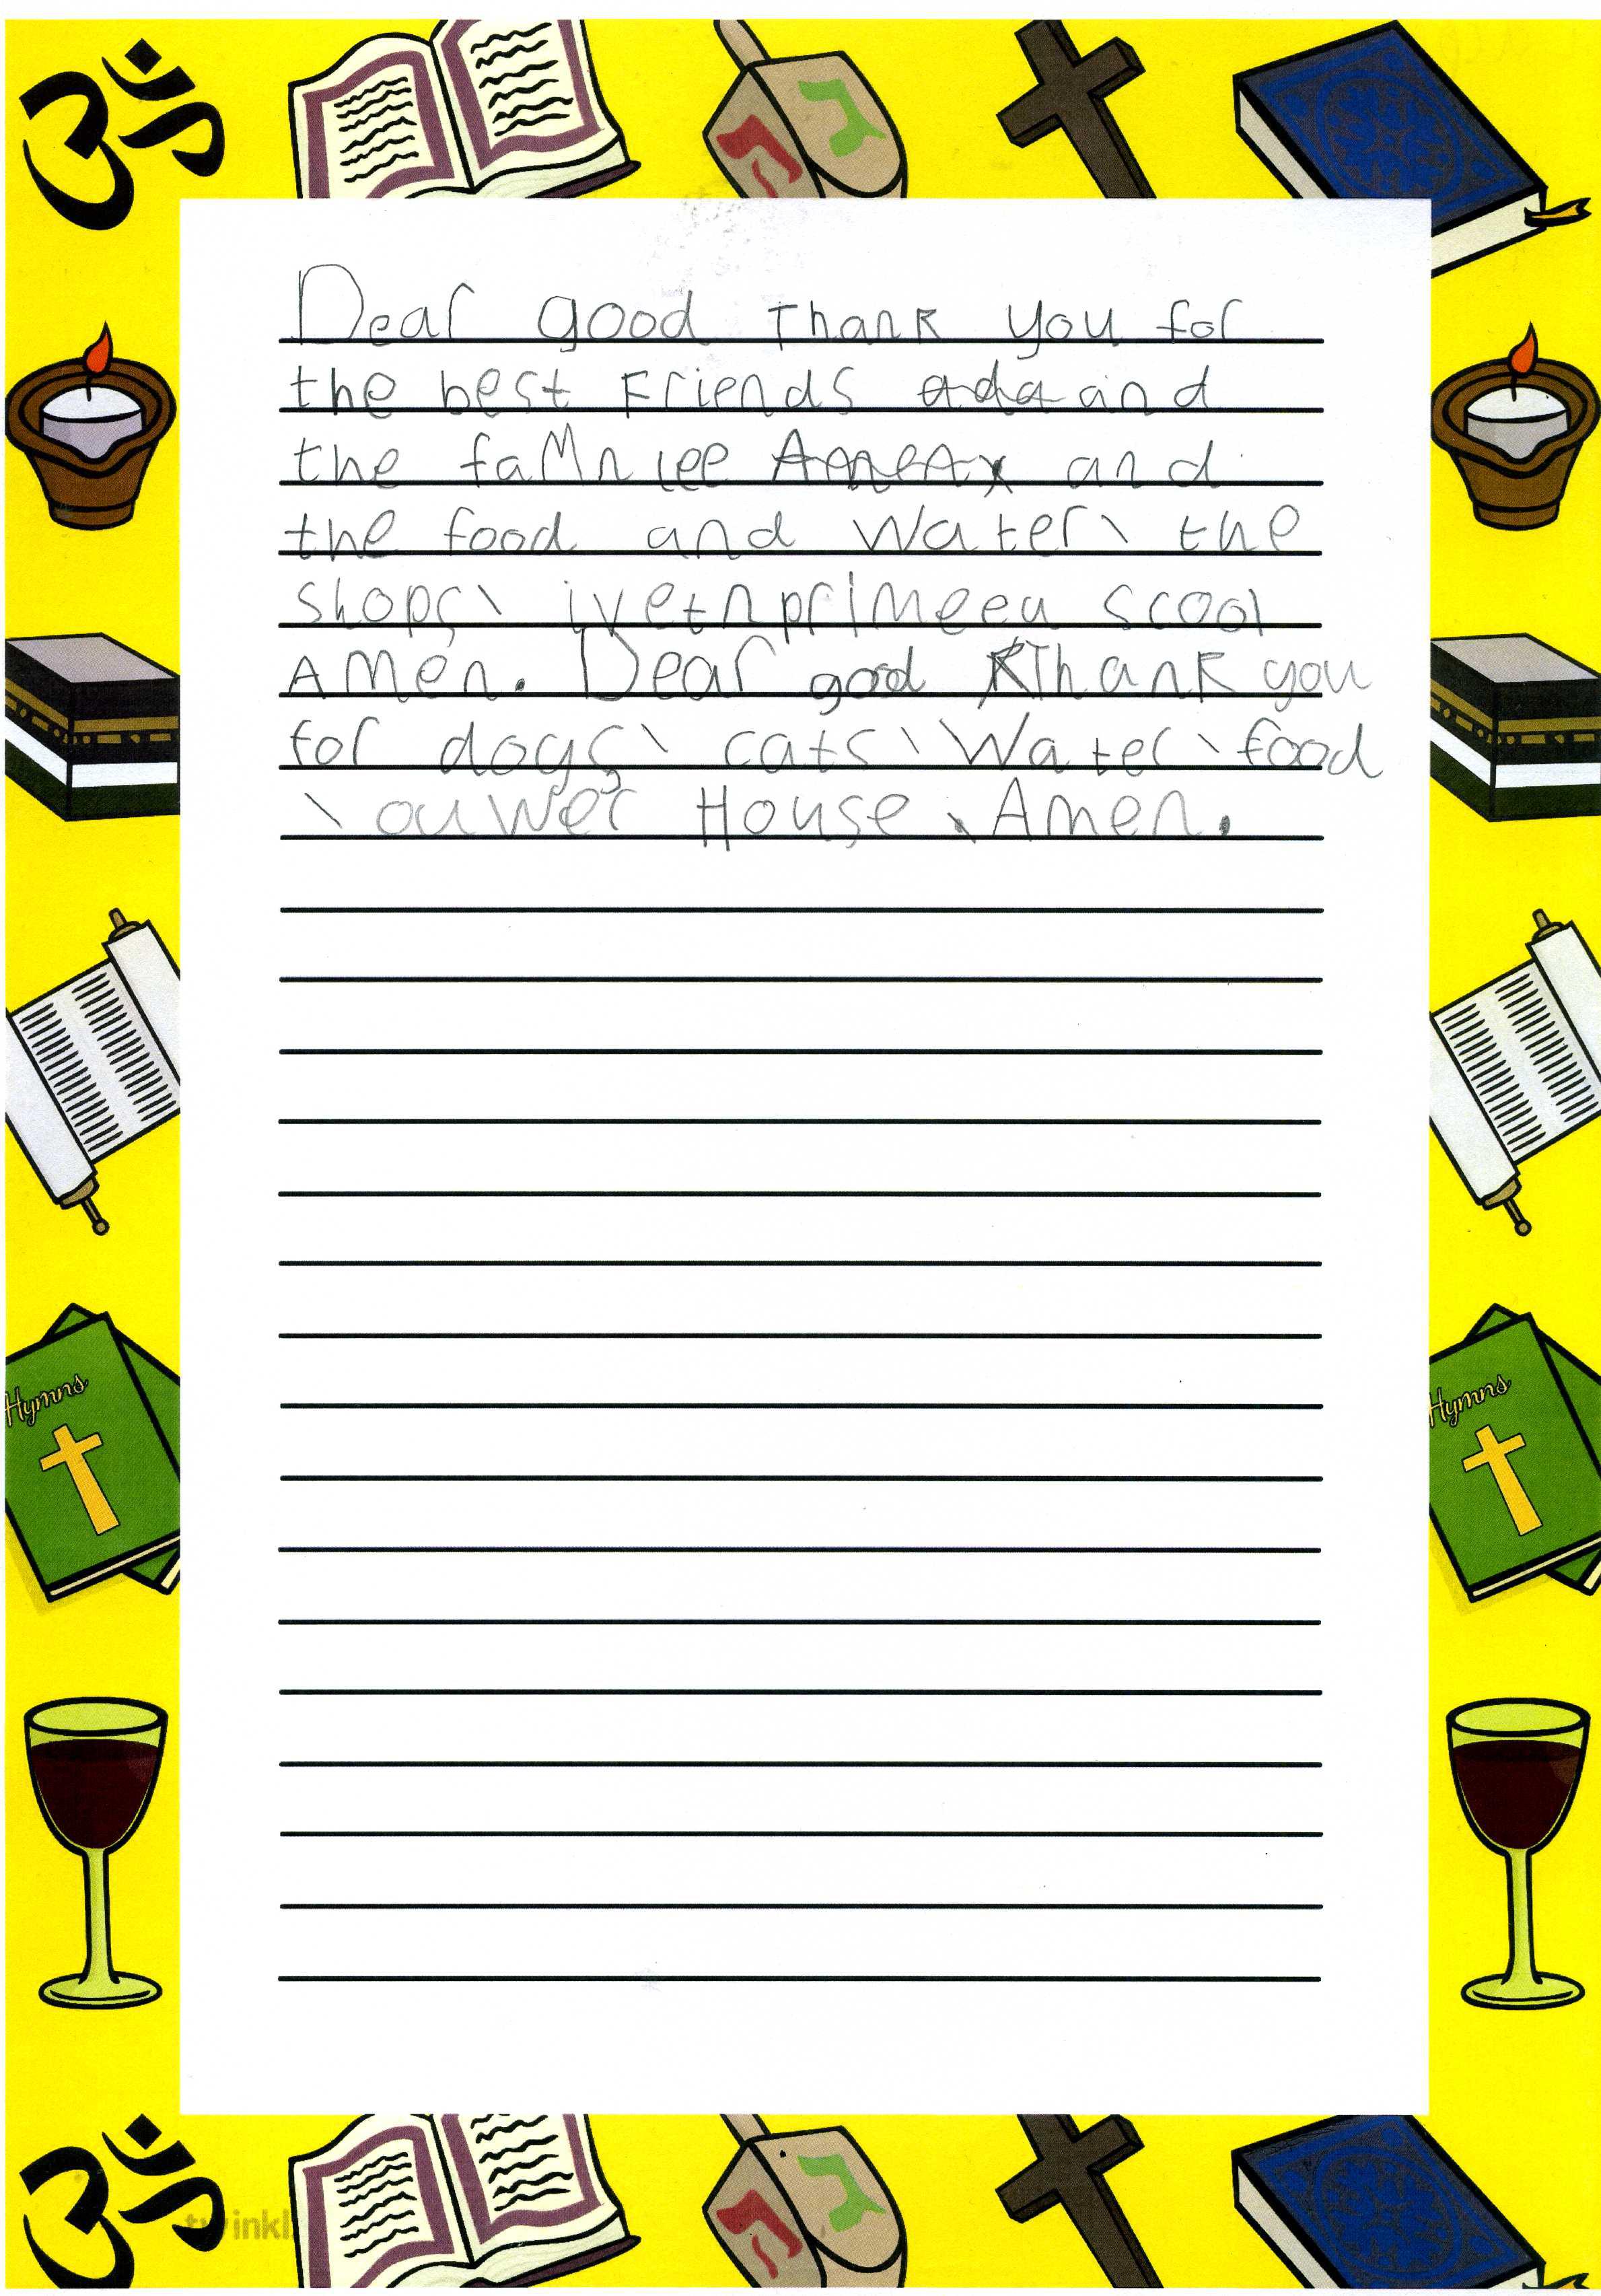 Dear good Thank you for
the best Friends and
the faMnlee and
the food and Water\ the
shops\ ivetnprimeea scool
AMen. Dear good Thank you
for dogs\ cats\ Water\ food
\ ouwer House\ Amen.
Hymns
Hymns
twinkl